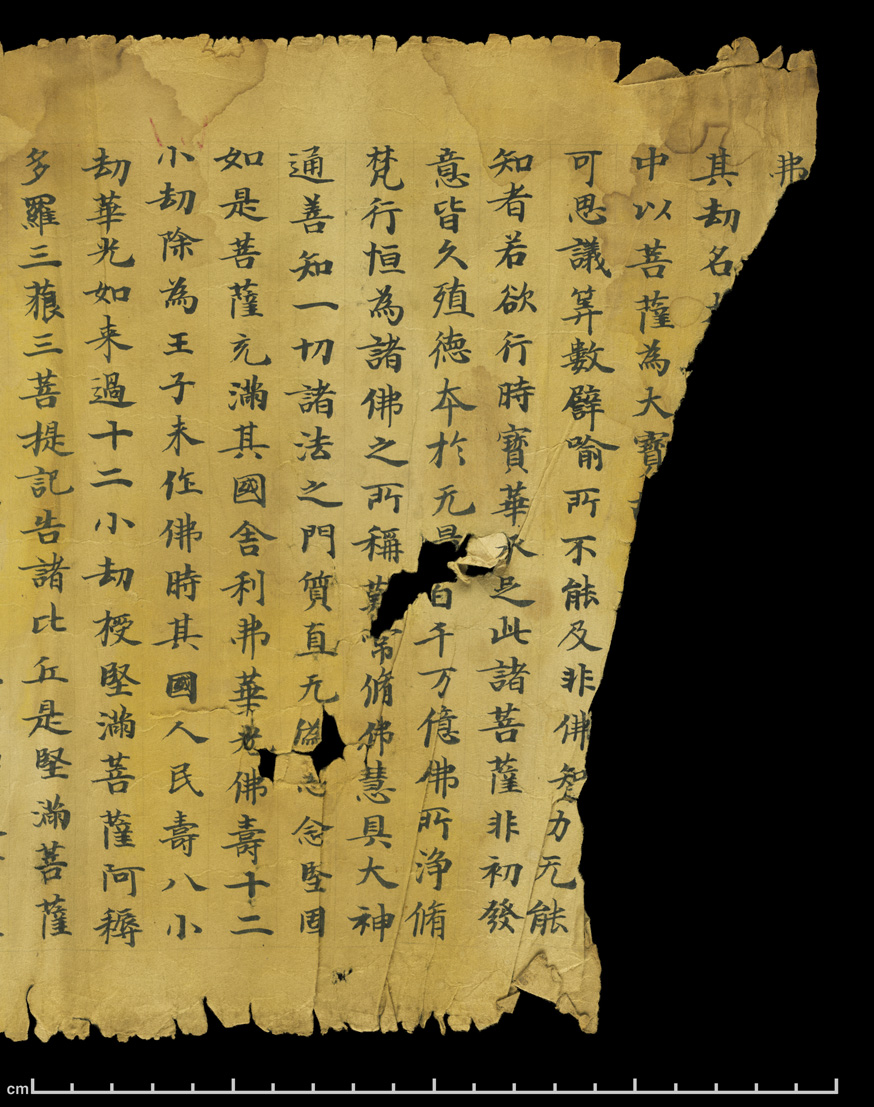 弗
其劫名
中以菩薩為大寶
可思議筭數譬喻所不能及非佛智力无能
知者若欲行時寶華承足此諸菩薩非初發
意皆久殖德本於无量百千万億佛所淨脩
梵行恒為諸佛之所稱歎常脩佛慧具大神
通善知一切諸法之門質直无偽志念堅固
如是菩薩充滿其國舍利弗華光佛壽十二
小劫除為王子未作佛時其國人民壽八小
劫華光如来過十二小劫授堅滿菩薩阿耨
多羅三藐三菩提記告諸比丘是堅滿菩薩
cm